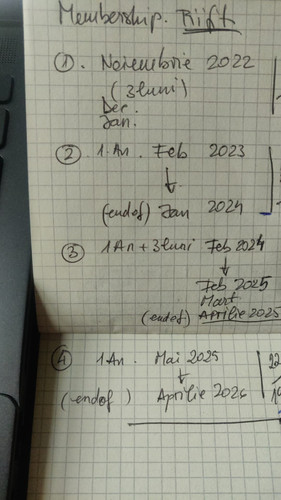 Membership. Rift
① . Noiembrie 2022
(3 luni)
Dec.
Jan.
② 1.An. Feb 2023
↓
(end of) Jan 2024
③ 1 An + 3 luni Feb 2024
↓
Feb 2025
Mart
(end of) Aprilie 2025
④ 1 An. Mai 2025
↓
(end of) Aprilie 2026